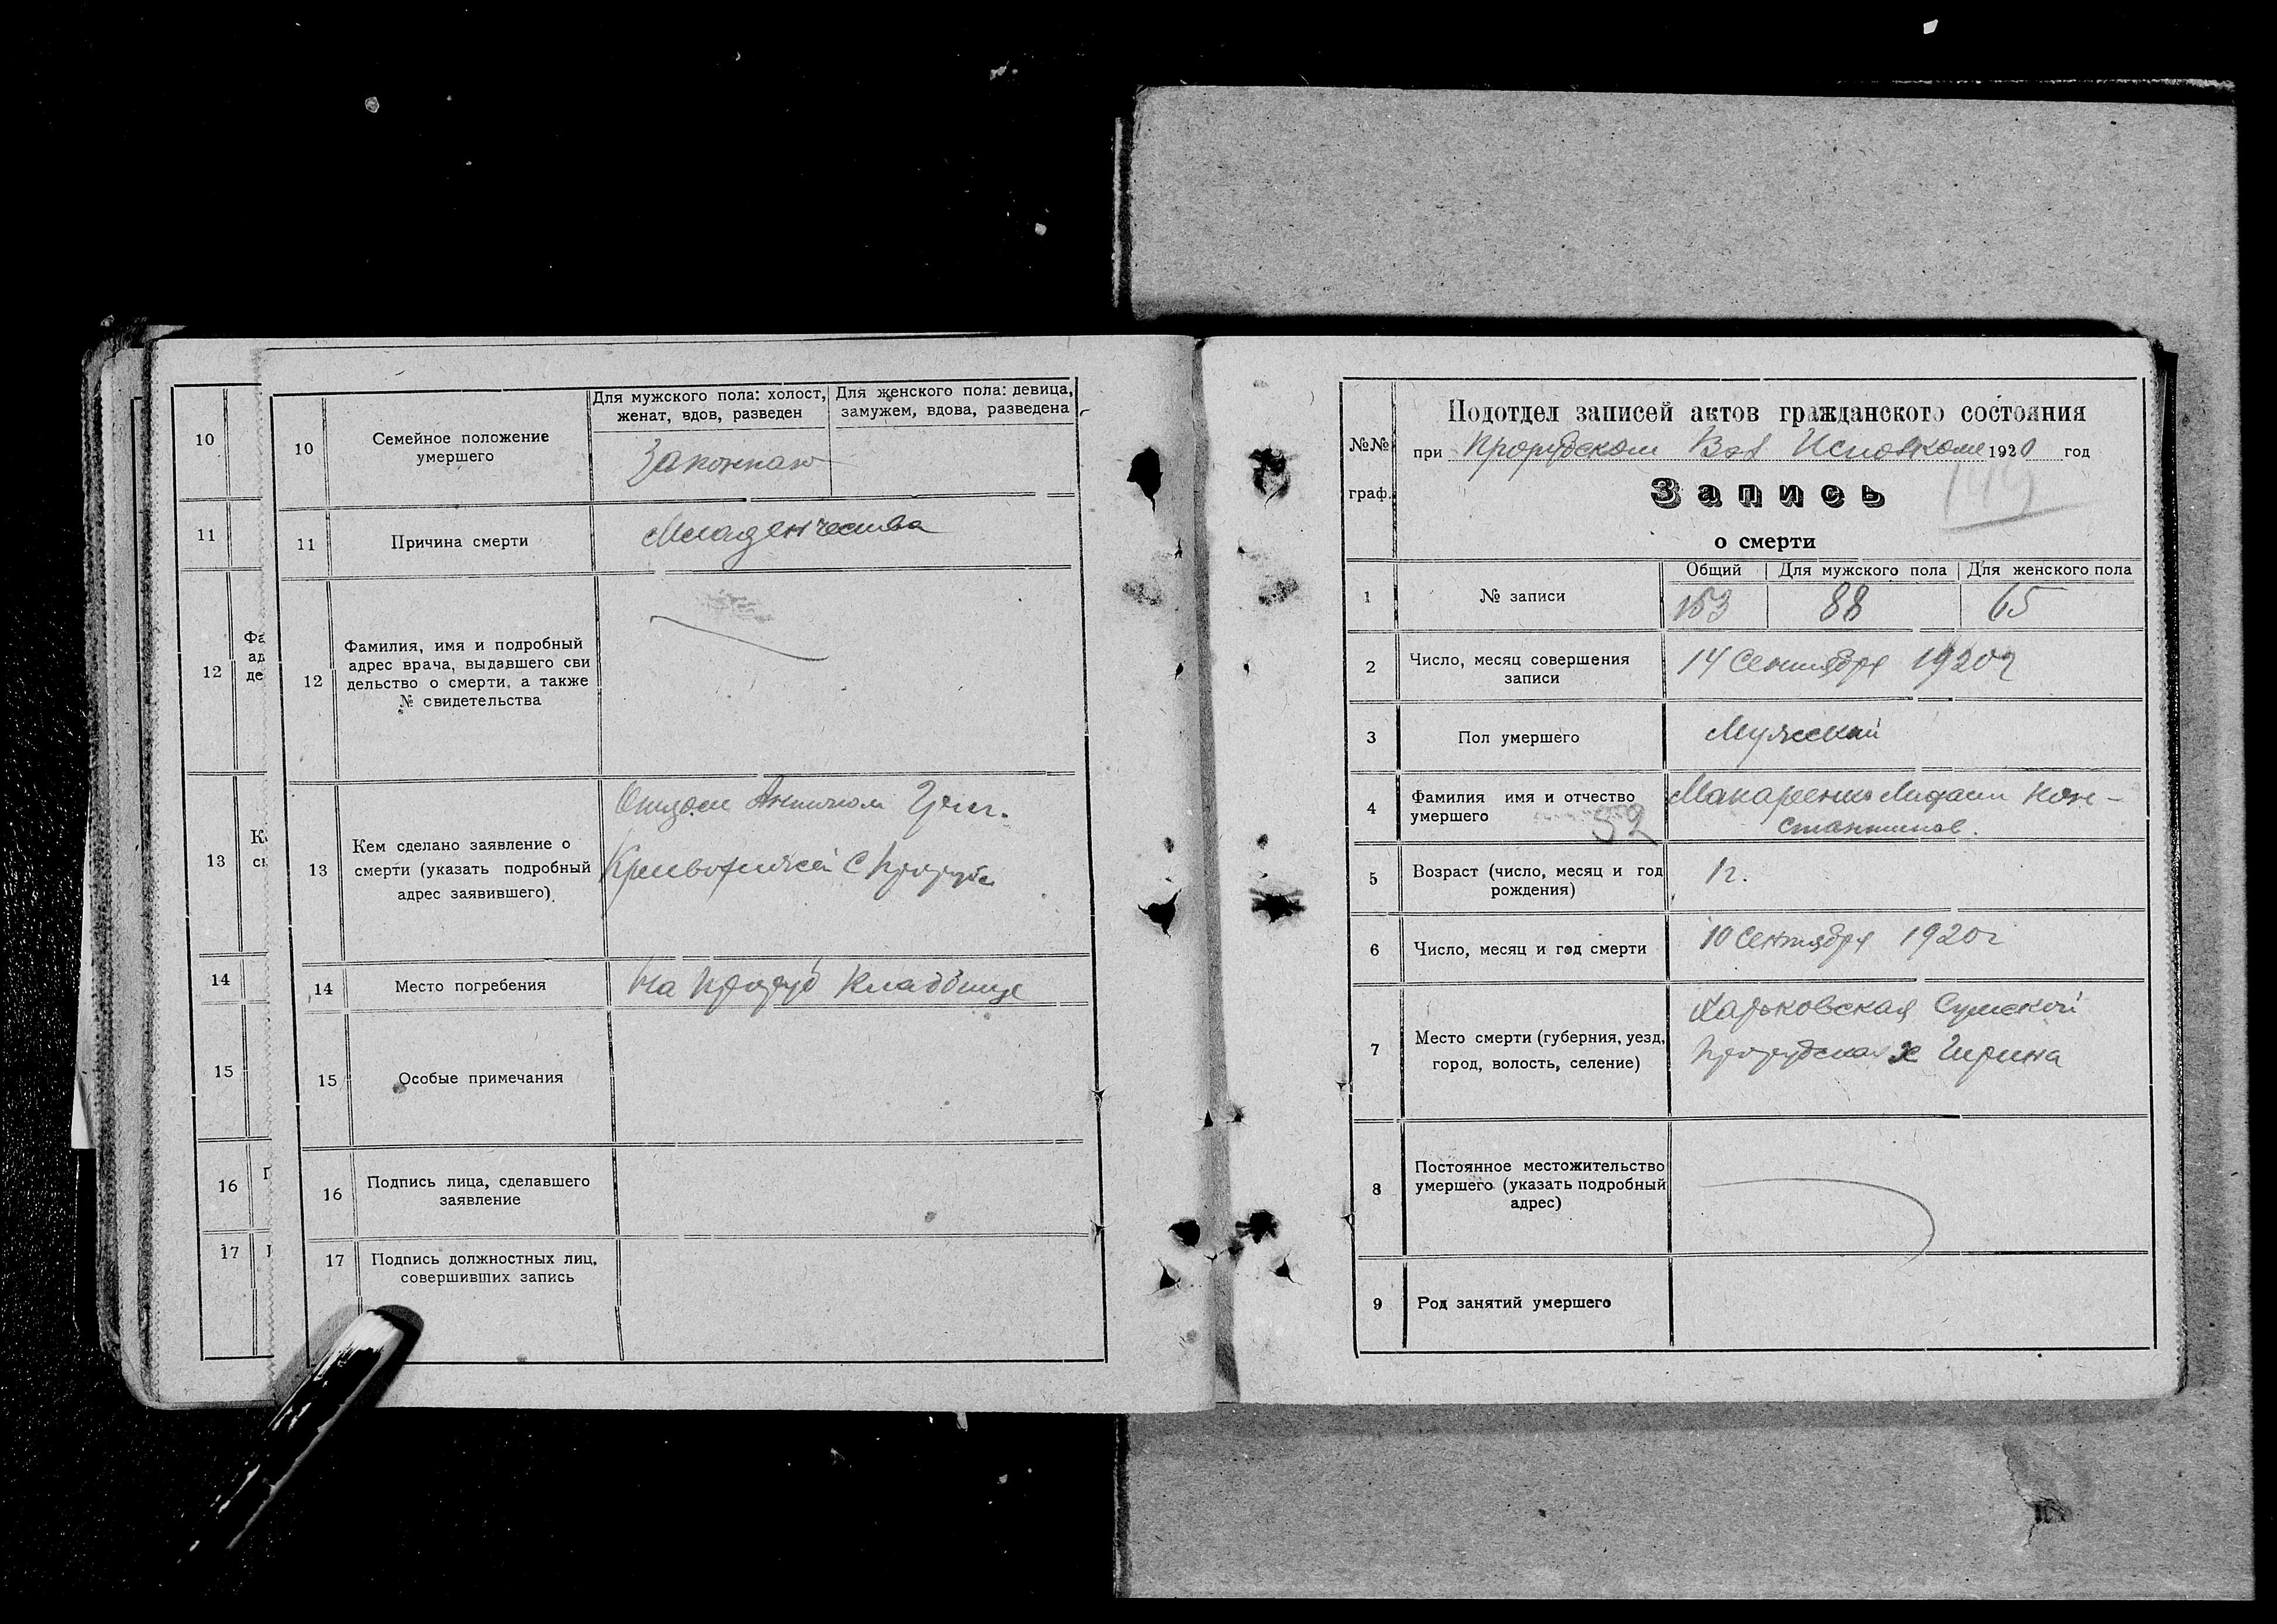 10
11
12
Фа
ад
де
13
К
сь
14
15
16
17
10
Семейное положение
умершего
Для мужского пола: холост,
женат, вдов, разведен
Для женского пола: девица,
замужем, вдова, разведена
11
Причина смерти
Младенчества
12
Фамилия, имя и подробный
адрес врача, выдавшего сви
дельство о смерти, а также
№ свидетельства
13
Кем сделано заявление о
смерти (указать подробный
адрес заявившего)
Отцом Антоном Григ.
С
14
Место погребения
На Проруб Кладбище
15
Особые примечания
16
Подпись лица, сделавшего
заявление
17
Подпись должностных лиц,
совершивших запись
№№
граф.
Подотдел записей актов гражданского состояния
при Прорубском Вол Исполкоме 1920 год
Запись
119
о смерти
1
№ записи
Общий
Для мужского пола
Для женского пола
153
88
65
2
Число, месяц совершения
записи
14 Сентября 1920 г
3
Пол умершего
Мужской
4
Фамилия имя и отчество
умершего
52
Макаренко Кон-
стантинов.
5
Возраст (число, месяц и год
рождения)
1 г.
6
Число, месяц и год смерти
10 Сентября 1920 г
7
Место смерти (губерния, уезд,
город, волость, селение)
Харьковская Сумской
Прорубская х Ширина
8
Постоянное местожительство
умершего (указать подробный
адрес)
9
Род занятий умершего